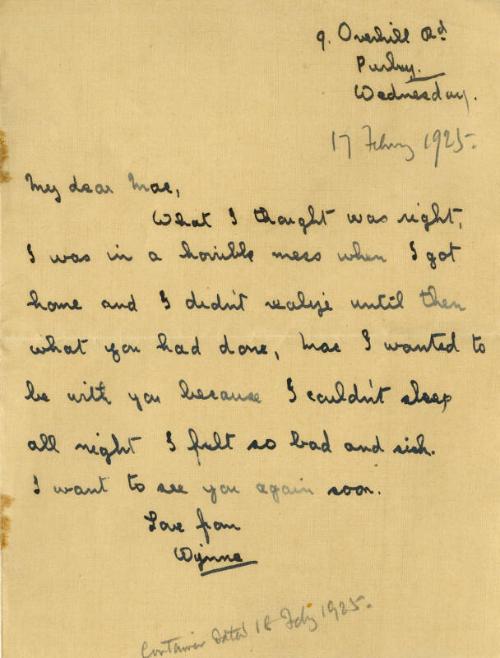 9. Overhill Rd
Purley.
Wednesday.
17 Febury 1925.
My dear Mae,
What I thought was right,
I was in a horrible mess when I got
home and I didn't realize until then
what you had done, Mae I wanted to
be with you because I couldn't sleep
all night I felt so bad and sick.
I want to see you again soon.
Love from
Wynne
Container dated 18 Feby 1925.